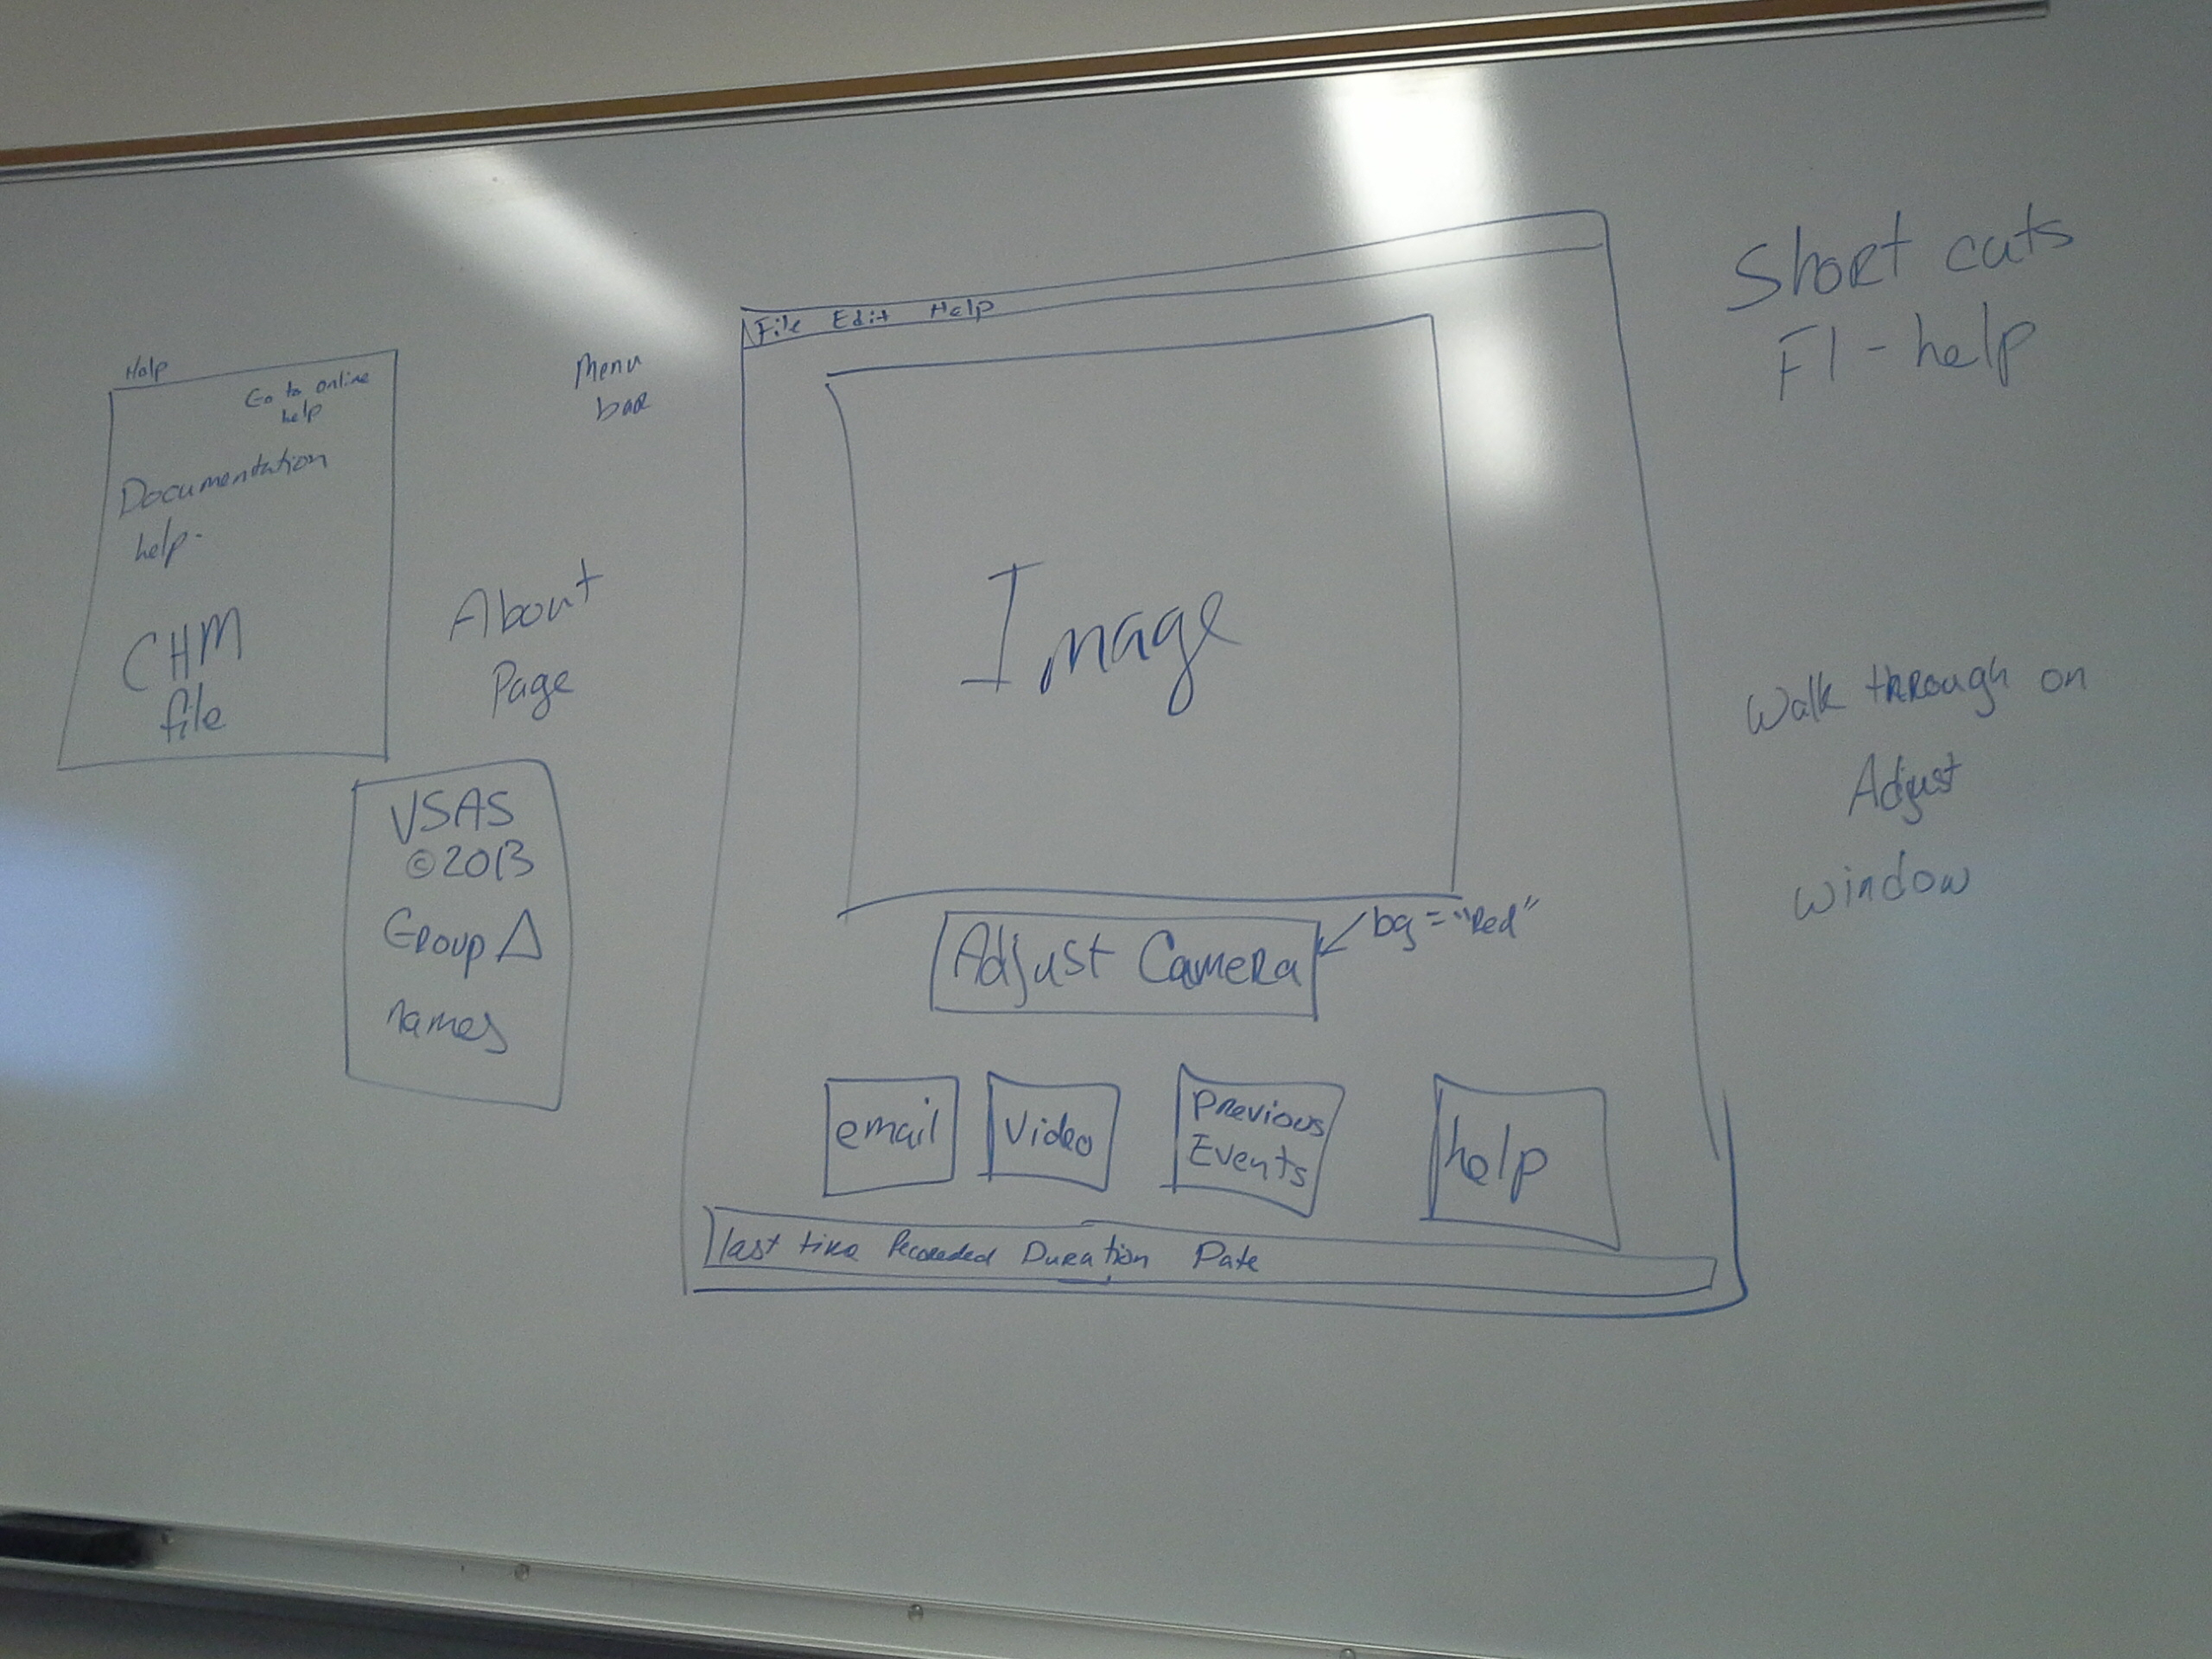 Help
Go to online
help
Documentation
help.
CHM
file
Menu
bar
About
Page
VSAS
©2013
Group Δ
names
File Edit Help
Image
Adjust Camera
bg = "Red"
email
Video
Previous
Events
help
last time Recorded Duration Date
Short cuts
F1 - help
Walk through on
Adjust
window